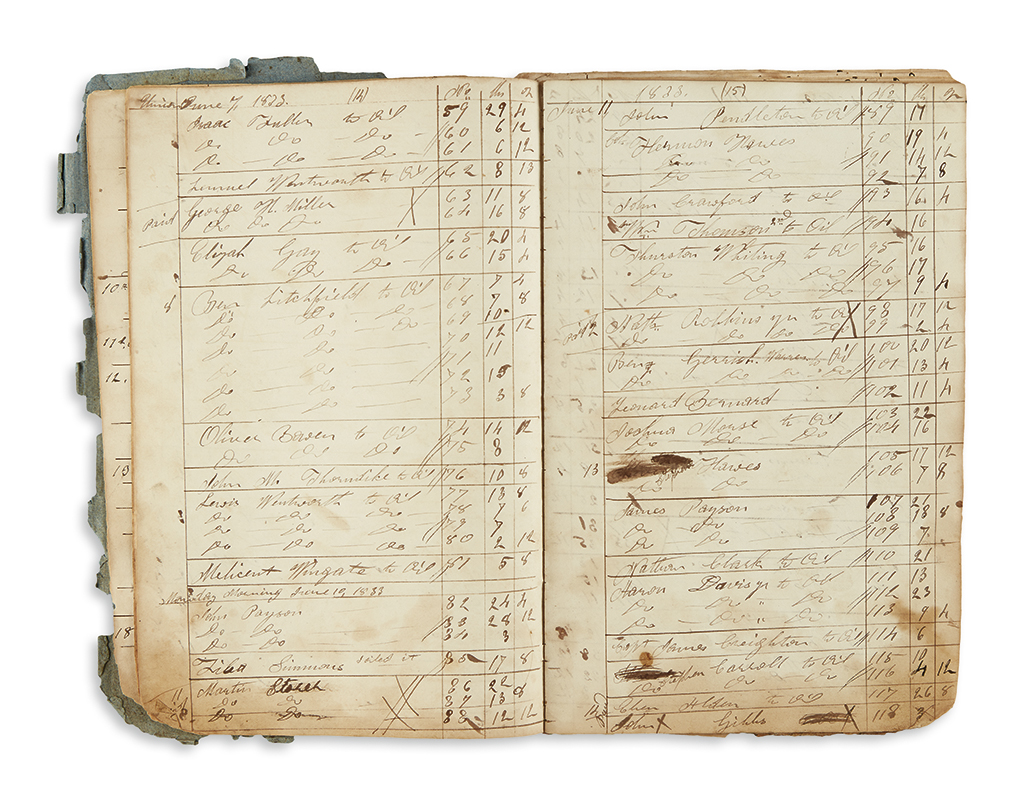 June 7 1833. (14) No lbs oz
Isaac Fuller to Oil 59 29 4
Do Do Do 60 6 12
Do Do Do 61 6 12
Lemuel Wentworth to Oil 62 8 13
paid George N. Miller X 63 11 8
Do Do Do 64 16 8
Elijah Gay to Oil 65 20 4
Do Do Do 66 15 4
8 Benj Litchfield to Oil 67 7 4
Do Do Do 68 7 8
Do Do Do 69 10 12
Do Do 70 12
Do 71 11
Do Do 72 15
Do Do 73 3 8
Do
Oliver Bowen to Oil 74 14 12
Do Do Do 75 8
John M. Thorndike to Oil 76 10 8
Lewis Wentworth to Oil 77 13 8
Do Do Do 78 7 6
Do Do Do 79 7
Do Do Do 80 2 12
Melicent Wingate to Oil 81 5 8
Monday Morning June 10 1833
John Payson 82 24 4
Do Do 83 28 12
Do Do 84 3
Ziba Simmons 85 17 8
11 Martin 86 22
Do Do 87 13 8
Do Do 88 12 12
10
12.
13
18
1833. (15) No lb oz
June 11 John Pendleton to Oil 89 17
Hermon Hawes 90 19 4
Do 91 14 12
Do Do 92 7 8
John Crawford to Oil 93 16 4
Wm Thomson 2nd to Oil 94 16
Thurston Whiting to Oil 95 16
Do Do Do 96 17
Do Do Do 97 9 4
12 Nath Robbins jn to Oil X 98 17 12
Do Do Do 99 2 4
Benj Gerrish Warren Oil 100 20 12
Do Do Do Do 101 13 4
Leonard Bernard 102 11 4
Joshua Morse to Oil 103 22
Do Do Do 104 16
13 Hawes 105 17 12
Do Do 106 7 8
James Payson 107 21
Do Do 108 18 8
Do Do 109 7
Nathan Clark to Oil 110 21
Aaron Davis jr to Oil 111 13
Do Do " Do 112 23
Do Do " Do 113 9 4
Capt James Creighton to Oil 114 6
Stephen Carroll to Oil 115 10
Do Do Do 116 4 12
Eben Alden to Oil 117 26 8
John X Gibbs X 118 3